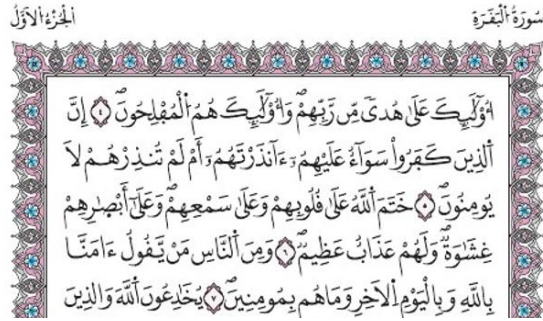 سُورَةُ الْبَقَرَةِ
الْجُزْءُ الْأَوَّلُ
أُوْلَٰٓئِكَ عَلَىٰ هُدىٗ مِّن رَّبِّهِمْۖ وَأُوْلَٰٓئِكَ هُمُ اُلْمُفْلِحُونَۖ ٤ إِنَّ
اَلذِينَ كَفَرُواْ سَوَآءٌ عَلَيْهِمُۥٓ ءَآنذَرْتَهُمُۥٓ أَمْ لَمْ تُنذِرْهُمْ لَا
يُومِنُونَۖ ٥ خَتَمَ اَللَّهُ عَلَىٰ قُلُوبِهِمْ وَعَلَىٰ سَمْعِهِمْۖ وَعَلَىٰٓ أَبْصٰ۪رِهِمْ
غِشَٰوَةٞۖ وَلَهُمْ عَذَابٌ عَظِيمٞۖ ٦ وَمِنَ اَلنَّاسِ مَنْ يَّقُولُ ءَامَنَّا
بِاللَّهِ وَبِالْيَوْمِ اِلْأَخِرِ وَمَا هُم بِمُومِنِينَۖ ٧ يُخَٰدِعُونَ اَللَّهَ وَالذِينَ